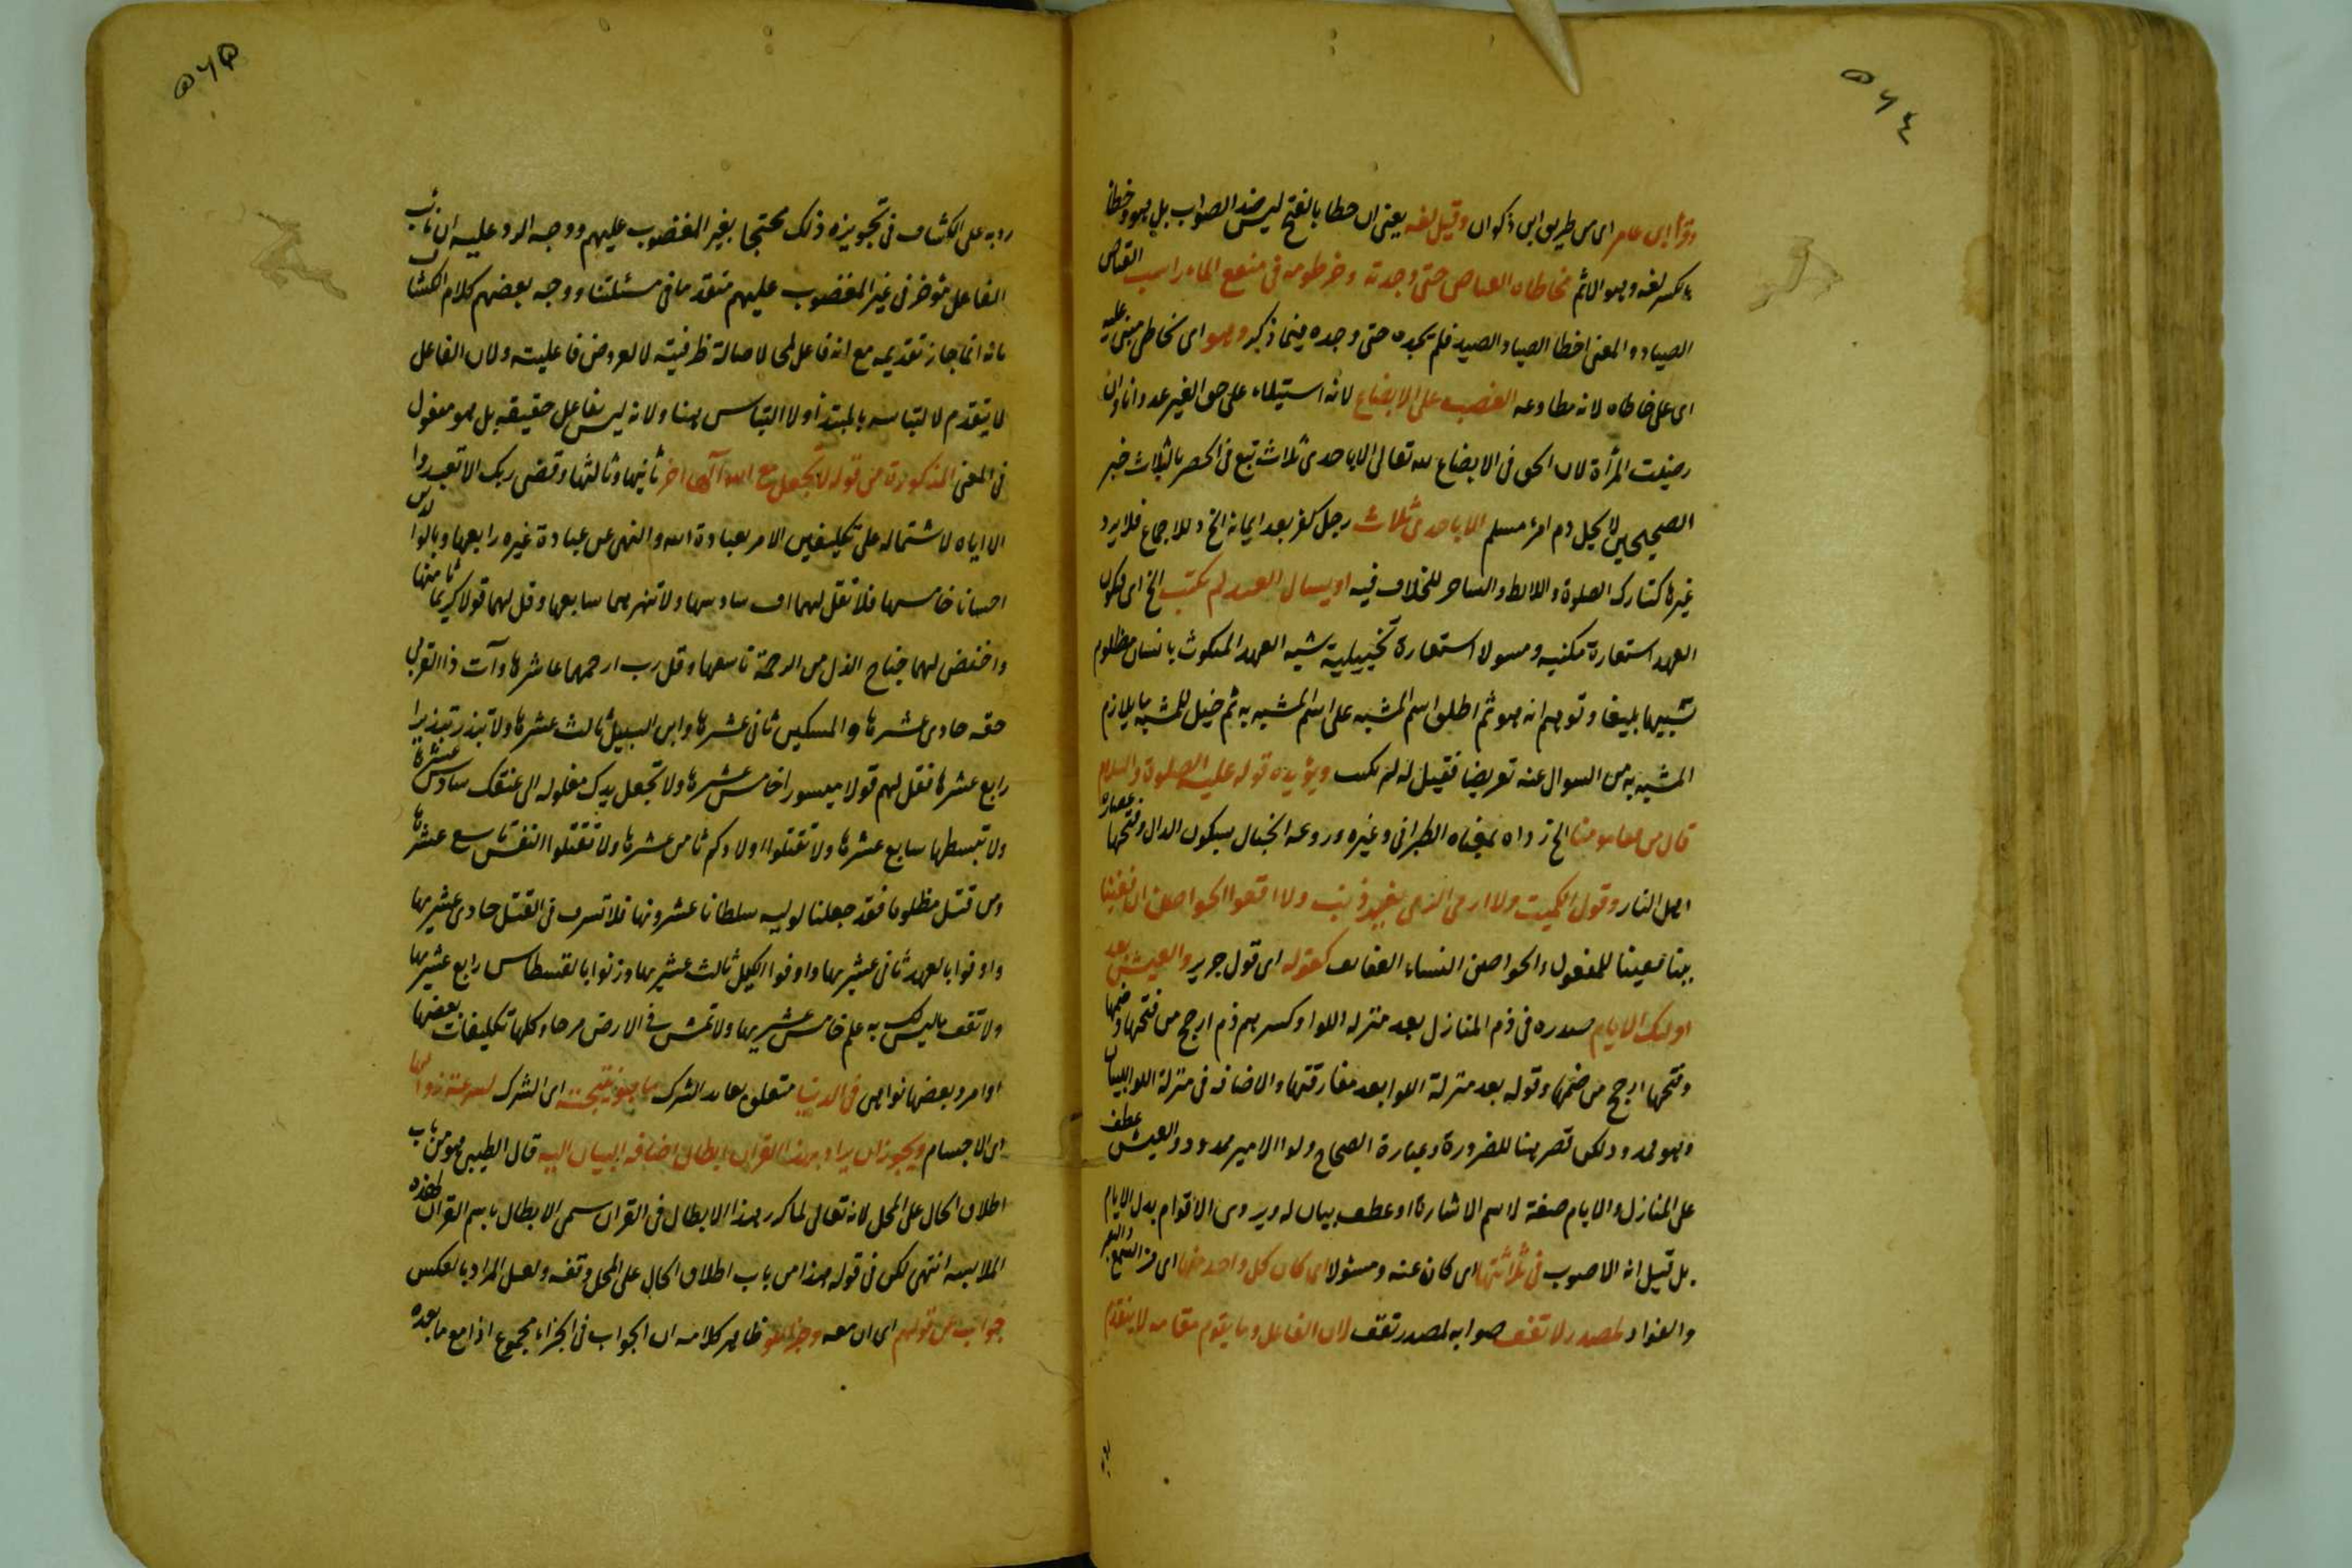 ٥٦٤
وقرأ ابن عامر اى من طريق ابن ذكوان وقيل لغه يعنى ان خطا بالفتح ليس ضد الصواب بل هو وخطا
بكسر لغه وهو الاثم تخاطاه القناص حتى وجدته وخرطومه فى منقع الماء راسب القناص
الصياد والمعنى اخطا الصياد الصيد فلم يجده حتى وجده فيما ذكر وهو اى تخاطى مبنى عليه
اى على خاطاه لانه مطاوعه الغصب على الابضاع لانه استيلاء على حق الغير عدوانا وان
رضيت المرأة لان الحق فى الابضاع لله تعالى الا باحدى ثلاث تبع فى الحصر بالثلاث خبر
الصحيحين لا يحل دم امرء مسلم الا باحدى ثلاث رجل كفر بعد ايمانه الخ وللاجماع فلا يرد
غيرها كتارك الصلوة واللايط والساحر للخلاف فيه او يسال العهد لم نكثت الخ اى فيكون
العهد استعارة مكنيه ومسولا استعارة تخييلية شبه العهد المنكوث بانسان مظلوم
تشبيها بليغا وتوهم انه هو ثم اطلق اسم المشبه على اسم المشبه به ثم خيل للمشبه ما يلازم
المشبه به من السوال عنه تعريضا فقيل له لم نكثت ويؤيده قوله عليه الصلوة والسلام
قال من قفا مومنا الخ رواه بمعناه الطبرانى وغيره وردغه الخبال بسكون الدال وفتحها عصارة
اهل النار وقول الكميت ولا ارمى البرى بغير ذنب ولا اقفوا الحواصن ان قفينا
ببناء قفينا للمفعول والحواصن النساء العفائف كقوله اى قول جرير والعيش بعد
اولئك الايام صدره فى ذم المنازل بعد منزله اللوا وكسر ميم ذم ارجح من فتحها وضمها
وفتحها ارجح من ضمها وقوله بعد منزلة اللوا بعد مفارقتها والاضافه فى منزلة اللوا للبيان
وهو ممدود لكن قصر هنا للضرورة وعبارة الصحاح ولوا الامير ممدود والعيش عطف
على المنازل والايام صفة لاسم الاشارة او عطف بيان له ويروى الاقوام بدل الايام
بل قيل انه الاصوب فى ثلاثتها اى كان عنه ومسئولا اى كان كل واحد منها اى من السمع والبصر
والفواد لمصدر لا تقف صوابه لمصدر تقف لان الفاعل وما يقوم مقامه لا يتقدم
٥٦٥
رد به على الكشاف فى تجويزه ذلك محتجا بغير المغضوب عليهم ووجه الرد عليه ان نائب
الفاعل مؤخر فى غير المغضوب عليهم متقدما فى مسئلتنا ووجه بعضهم كلام الكشاف
بانه انما جاز تقديمه مع انه فاعل لمحا لاصالة ظرفيته لا لعروض فاعليته ولان الفاعل
لا يتقدم لالتباسه بالمبتدأ ولا التباس هنا ولانه ليس بفاعل حقيقه بل هو مفعول
فى المعنى المذكورة من قوله لا تجعل مع الله الها اخر ثانيها وثالثها وقضى ربك الا تعبدوا
الا اياه لاشتماله على تكليفين الامر بعبادة الله والنهى عن عبادة غيره رابعها وبالوالدين
احسانا خامسها فلا تقل لهما اف سادسها ولا تنهرهما سابعها وقل لهما قولا كريما ثامنها
واخفض لهما جناح الذل من الرحمة تاسعها وقل رب ارحمهما عاشرها وآت ذا القربى
حقه حادى عشرها والمسكين ثانى عشرها وابن السبيل ثالث عشرها ولا تبذر تبذيرا
رابع عشرها فقل لهم قولا ميسورا خامس عشرها ولا تجعل يدك مغلوله الى عنقك سادس عشرها
ولا تبسطها سابع عشرها ولا تقتلوا اولادكم ثامن عشرها ولا تقتلوا النفس تاسع عشرها
ومن قتل مظلوما فقد جعلنا لوليه سلطانا عشرونها فلا تسرف فى القتل حادى عشريها
واوفوا بالعهد ثانى عشريها واوفوا الكيل ثالث عشريها وزنوا بالقسطاس رابع عشريها
ولا تقف ما ليس لك به علم خامس عشريها ولا تمش فى الارض مرحا وكلها تكليفات بعضها
اوامر وبعضها نواهى فى الدنيا متعلق بعائد الشرك ما هو نتيجته اى الشرك لسرعة زوالها
اى الاجسام ويجوز ان يراد بهذا القران ابطال اضافه البنات اليه قال الطيبى هو من باب
اطلاق الحال على المحل لانه تعالى لما كرر هذا الابطال فى القران سمى الابطال باسم القران لهذه
الملابسه انتهى لكن فى قوله هذا من باب اطلاق الحال على المحل وقفه ولعل المراد بالعكس
جواب عن قولهم اى ان معه وجزاء لو ظاهر كلامه ان الجواب فى الجزاء مجموع اذا مع ما بعده